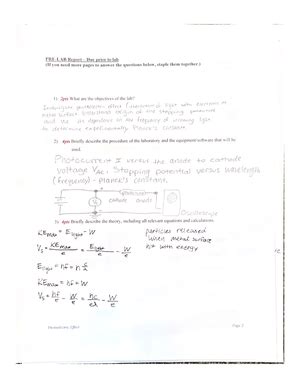 PRE-LAB Report - Due prior to lab
(If you need more pages to answer the questions below, staple them together.)
1) 2pts What are the objectives of the lab?
Investigate photoelectric effect (interaction of light with electrons in
and its dependence on the frequency of incoming light
to determine experimentally Planck's constant.
2) 4pts Briefly describe the procedure of the laboratory and the equipment/software that will be
used.
Photocurrent I versus the anode to cathode
voltage VAC; Stopping potential versus wavelength
(frequency) - Planck's constant.
cathode anode
Oscilloscope
3) 4pts Briefly describe the theory, including all relevant equations and calculations.
KEmax = Elight - W
particles released
when metal surface
hit with energy
Vs = KEmax/e = Elight/e - W/e
Elight = hf = h c/λ
KEmax = hf - W
Vs = hf/e - W/e = hc/eλ - W/e
Page 2